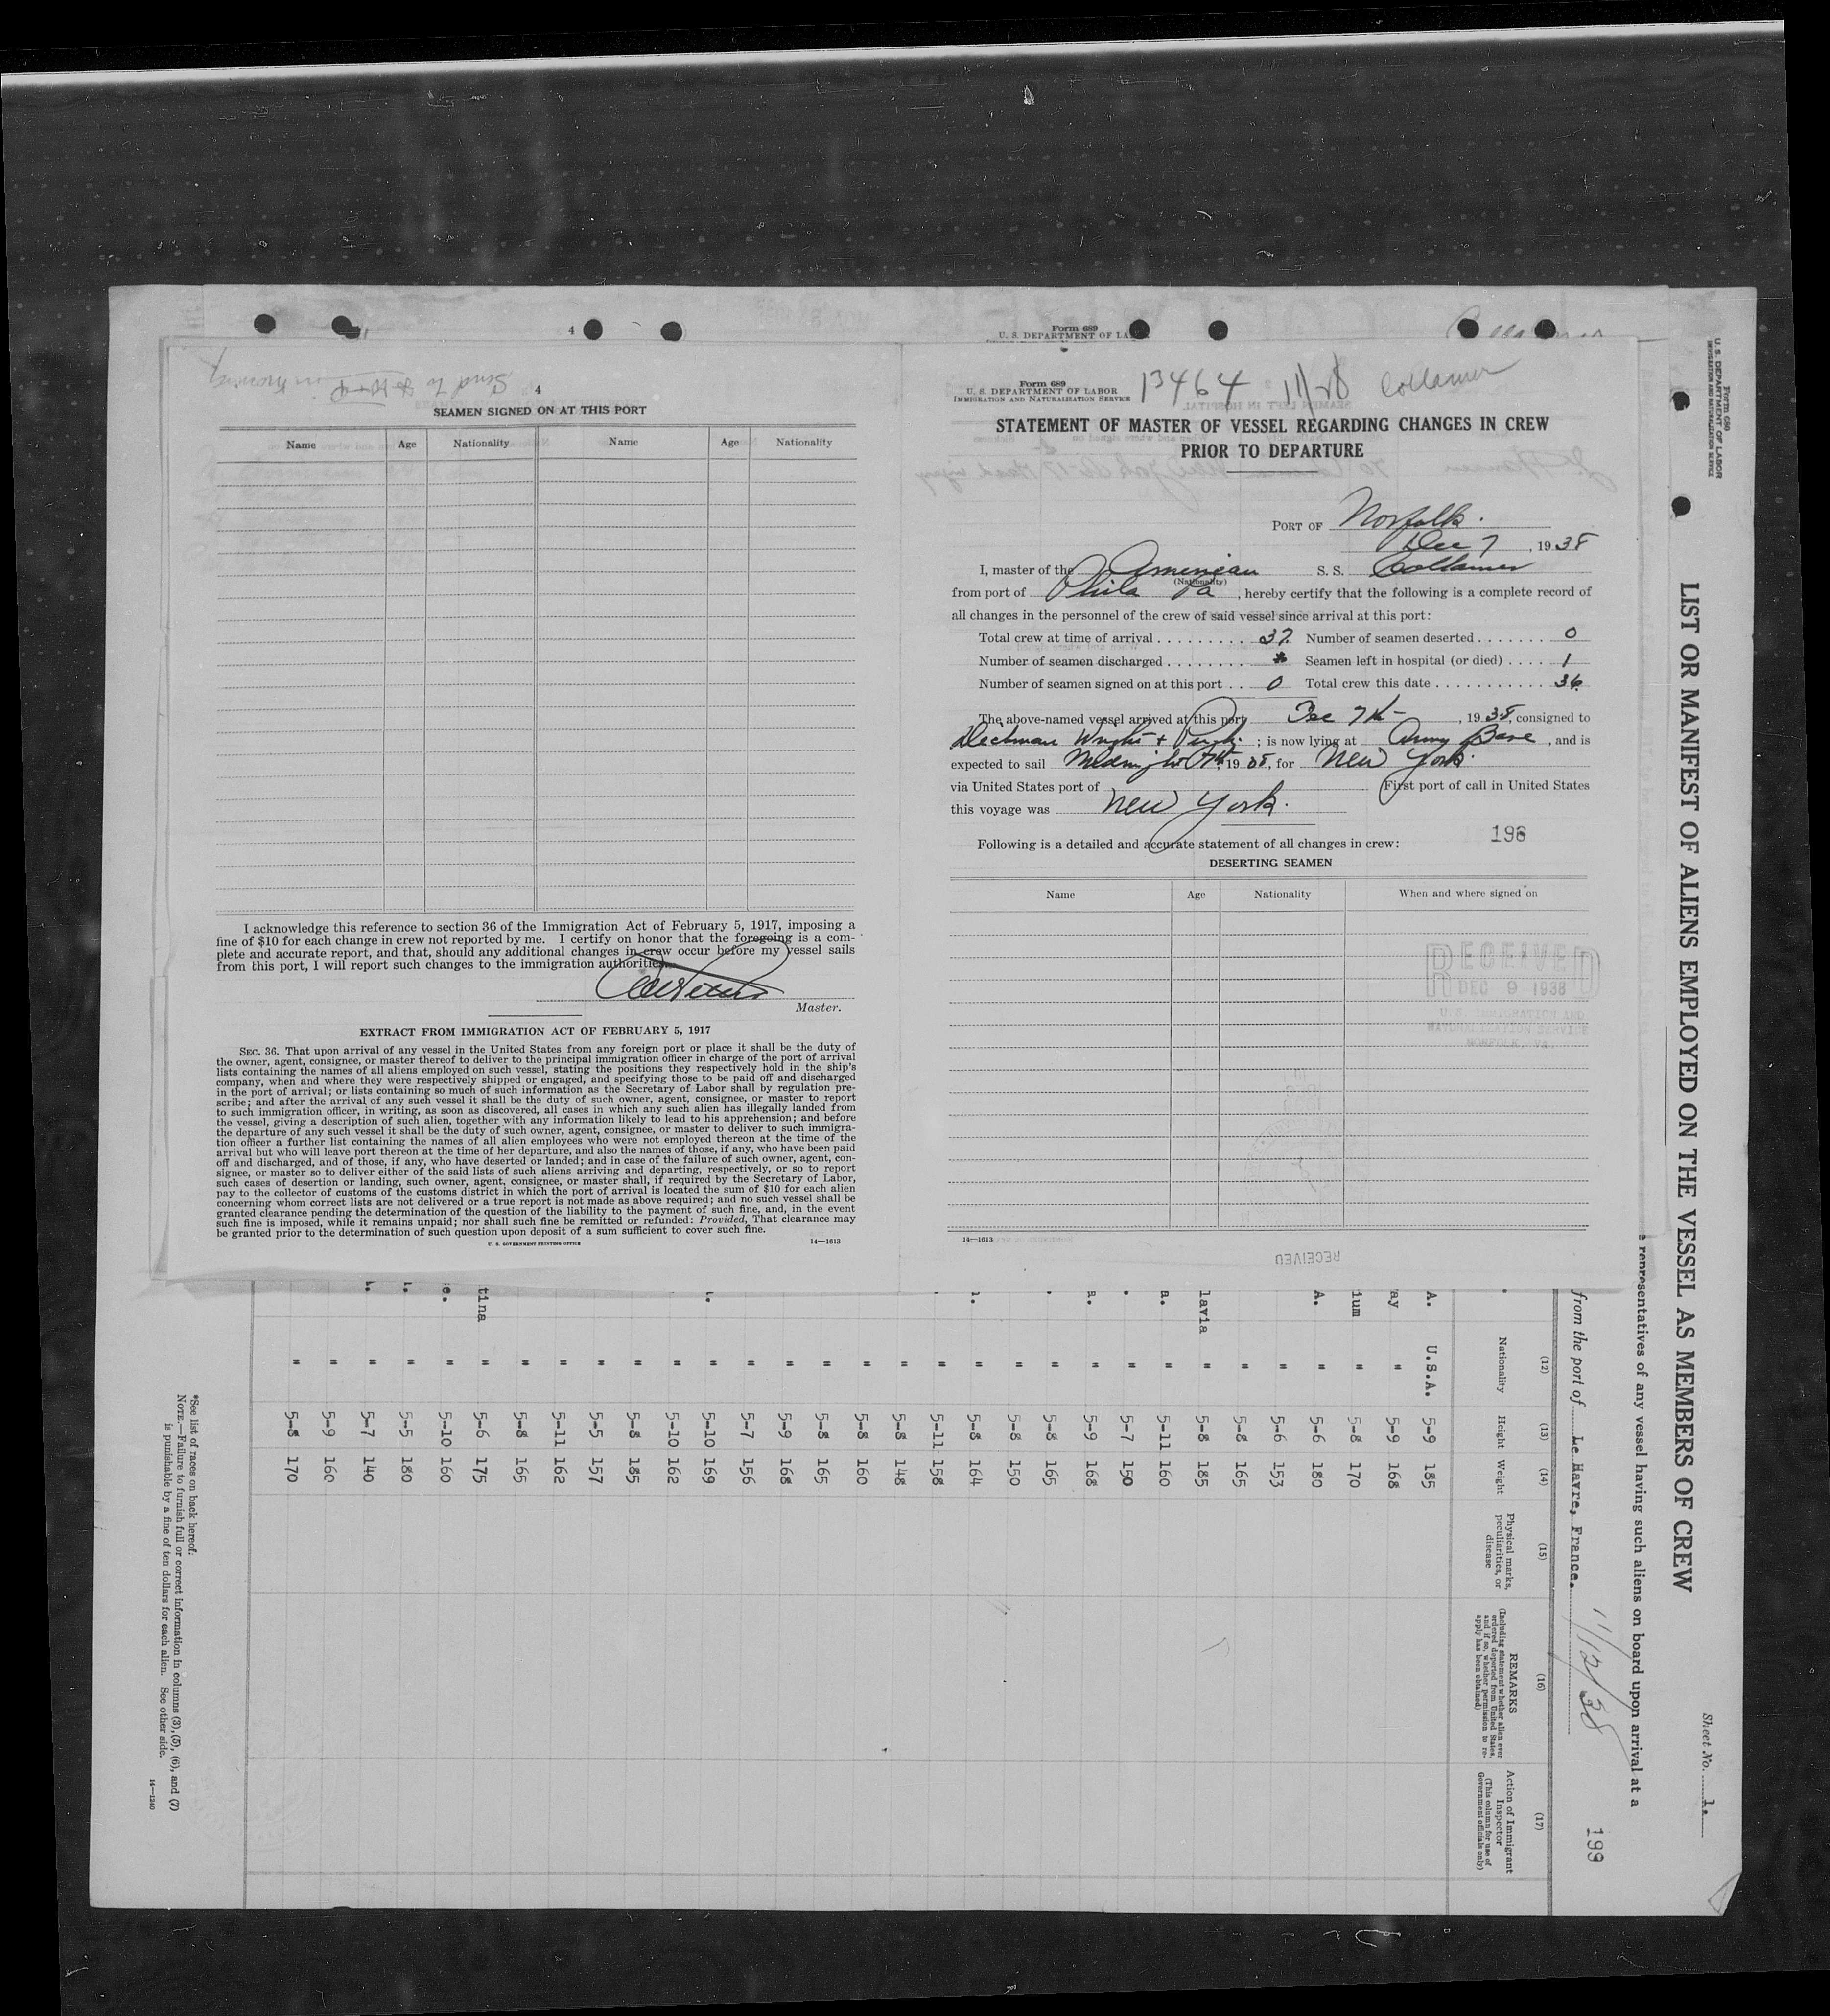 4
Form 689
U. S. DEPARTMENT OF LA
4
SEAMEN SIGNED ON AT THIS PORT
Name Age Nationality Name Age Nationality
I acknowledge this reference to section 36 of the Immigration Act of February 5, 1917, imposing a
fine of $10 for each change in crew not reported by me. I certify on honor that the foregoing is a com-
plete and accurate report, and that, should any additional changes in crew occur before my vessel sails
from this port, I will report such changes to the immigration authorities.
Master.
EXTRACT FROM IMMIGRATION ACT OF FEBRUARY 5, 1917
SEC. 36. That upon arrival of any vessel in the United States from any foreign port or place it shall be the duty of
the owner, agent, consignee, or master thereof to deliver to the principal immigration officer in charge of the port of arrival
lists containing the names of all aliens employed on such vessel, stating the positions they respectively hold in the ship's
company, when and where they were respectively shipped or engaged, and specifying those to be paid off and discharged
in the port of arrival; or lists containing so much of such information as the Secretary of Labor shall by regulation pre-
scribe; and after the arrival of any such vessel it shall be the duty of such owner, agent, consignee, or master to report
to such immigration officer, in writing, as soon as discovered, all cases in which any such alien has illegally landed from
the vessel, giving a description of such alien, together with any information likely to lead to his apprehension; and before
the departure of any such vessel it shall be the duty of such owner, agent, consignee, or master to deliver to such immigra-
tion officer a further list containing the names of all alien employees who were not employed thereon at the time of the
arrival but who will leave port thereon at the time of her departure, and also the names of those, if any, who have been paid
off and discharged, and of those, if any, who have deserted or landed; and in case of the failure of such owner, agent, con-
signee, or master so to deliver either of the said lists of such aliens arriving and departing, respectively, or so to report
such cases of desertion or landing, such owner, agent, consignee, or master shall, if required by the Secretary of Labor,
pay to the collector of customs of the customs district in which the port of arrival is located the sum of $10 for each alien
concerning whom correct lists are not delivered or a true report is not made as above required; and no such vessel shall be
granted clearance pending the determination of the question of the liability to the payment of such fine, and, in the event
such fine is imposed, while it remains unpaid; nor shall such fine be remitted or refunded: Provided, That clearance may
be granted prior to the determination of such question upon deposit of a sum sufficient to cover such fine.
U. S. GOVERNMENT PRINTING OFFICE 14—1613
Form 689
U. S. DEPARTMENT OF LABOR
IMMIGRATION AND NATURALIZATION SERVICE
13464 11/28 Collamer
STATEMENT OF MASTER OF VESSEL REGARDING CHANGES IN CREW
PRIOR TO DEPARTURE
PORT OF Norfolk.
Dec 7, 1938
I, master of the American S. S. Collamer
(Nationality)
from port of Phila Pa, hereby certify that the following is a complete record of
all changes in the personnel of the crew of said vessel since arrival at this port:
Total crew at time of arrival 37 Number of seamen deserted 0
Number of seamen discharged Seamen left in hospital (or died) 1
Number of seamen signed on at this port 0 Total crew this date 36
The above-named vessel arrived at this port Dec 7th, 1938, consigned to
Wright + ; is now lying at Army Base, and is
expected to sail Midnight 7th 1938, for New York.
via United States port of First port of call in United States
this voyage was New York.
196
Following is a detailed and accurate statement of all changes in crew:
DESERTING SEAMEN
Name Age Nationality When and where signed on
RECEIVED
DEC 9 1938
U.S. IMMIGRATION AND
NATURALIZATION SERVICE
NORFOLK, VA.
14—1613
RECEIVED
Form 680
U. S. DEPARTMENT OF LABOR
IMMIGRATION AND NATURALIZATION SERVICE
Sheet No. 1.
LIST OR MANIFEST OF ALIENS EMPLOYED ON THE VESSEL AS MEMBERS OF CREW
representatives of any vessel having such aliens on board upon arrival at a
from the port of Le Havre, France. 11/12/38
199
(12) (13) (14) (15) (16) (17)
Nationality Height Weight Physical marks, peculiarities, or disease REMARKS (Including statement whether alien ever ordered deported from United States, and if so, whether permission to re-apply has been obtained) Action of Immigrant Inspector (This column for use of Government officials only)
A. U.S.A. 5-9 185
ay " 5-9 168
ium " 5-8 170
A. " 5-6 180
" 5-6 153
" 5-8 165
lavia " 5-8 185
a. " 5-11 160
. " 5-7 150
a. " 5-9 168
. " 5-8 165
" 5-8 150
. " 5-8 164
. " 5-11 158
" 5-8 148
" 5-8 160
" 5-8 165
" 5-9 168
" 5-7 156
. " 5-10 169
" 5-10 162
" 5-8 185
" 5-5 157
" 5-11 168
" 5-8 165
tina " 5-6 175
e. " 5-10 160
. " 5-5 180
. " 5-7 140
" 5-9 160
" 5-8 170
*See list of races on back hereof.
NOTE.—Failure to furnish full or correct information in columns (3), (5), (6), and (7)
is punishable by a fine of ten dollars for each alien. See other side.
14—1240